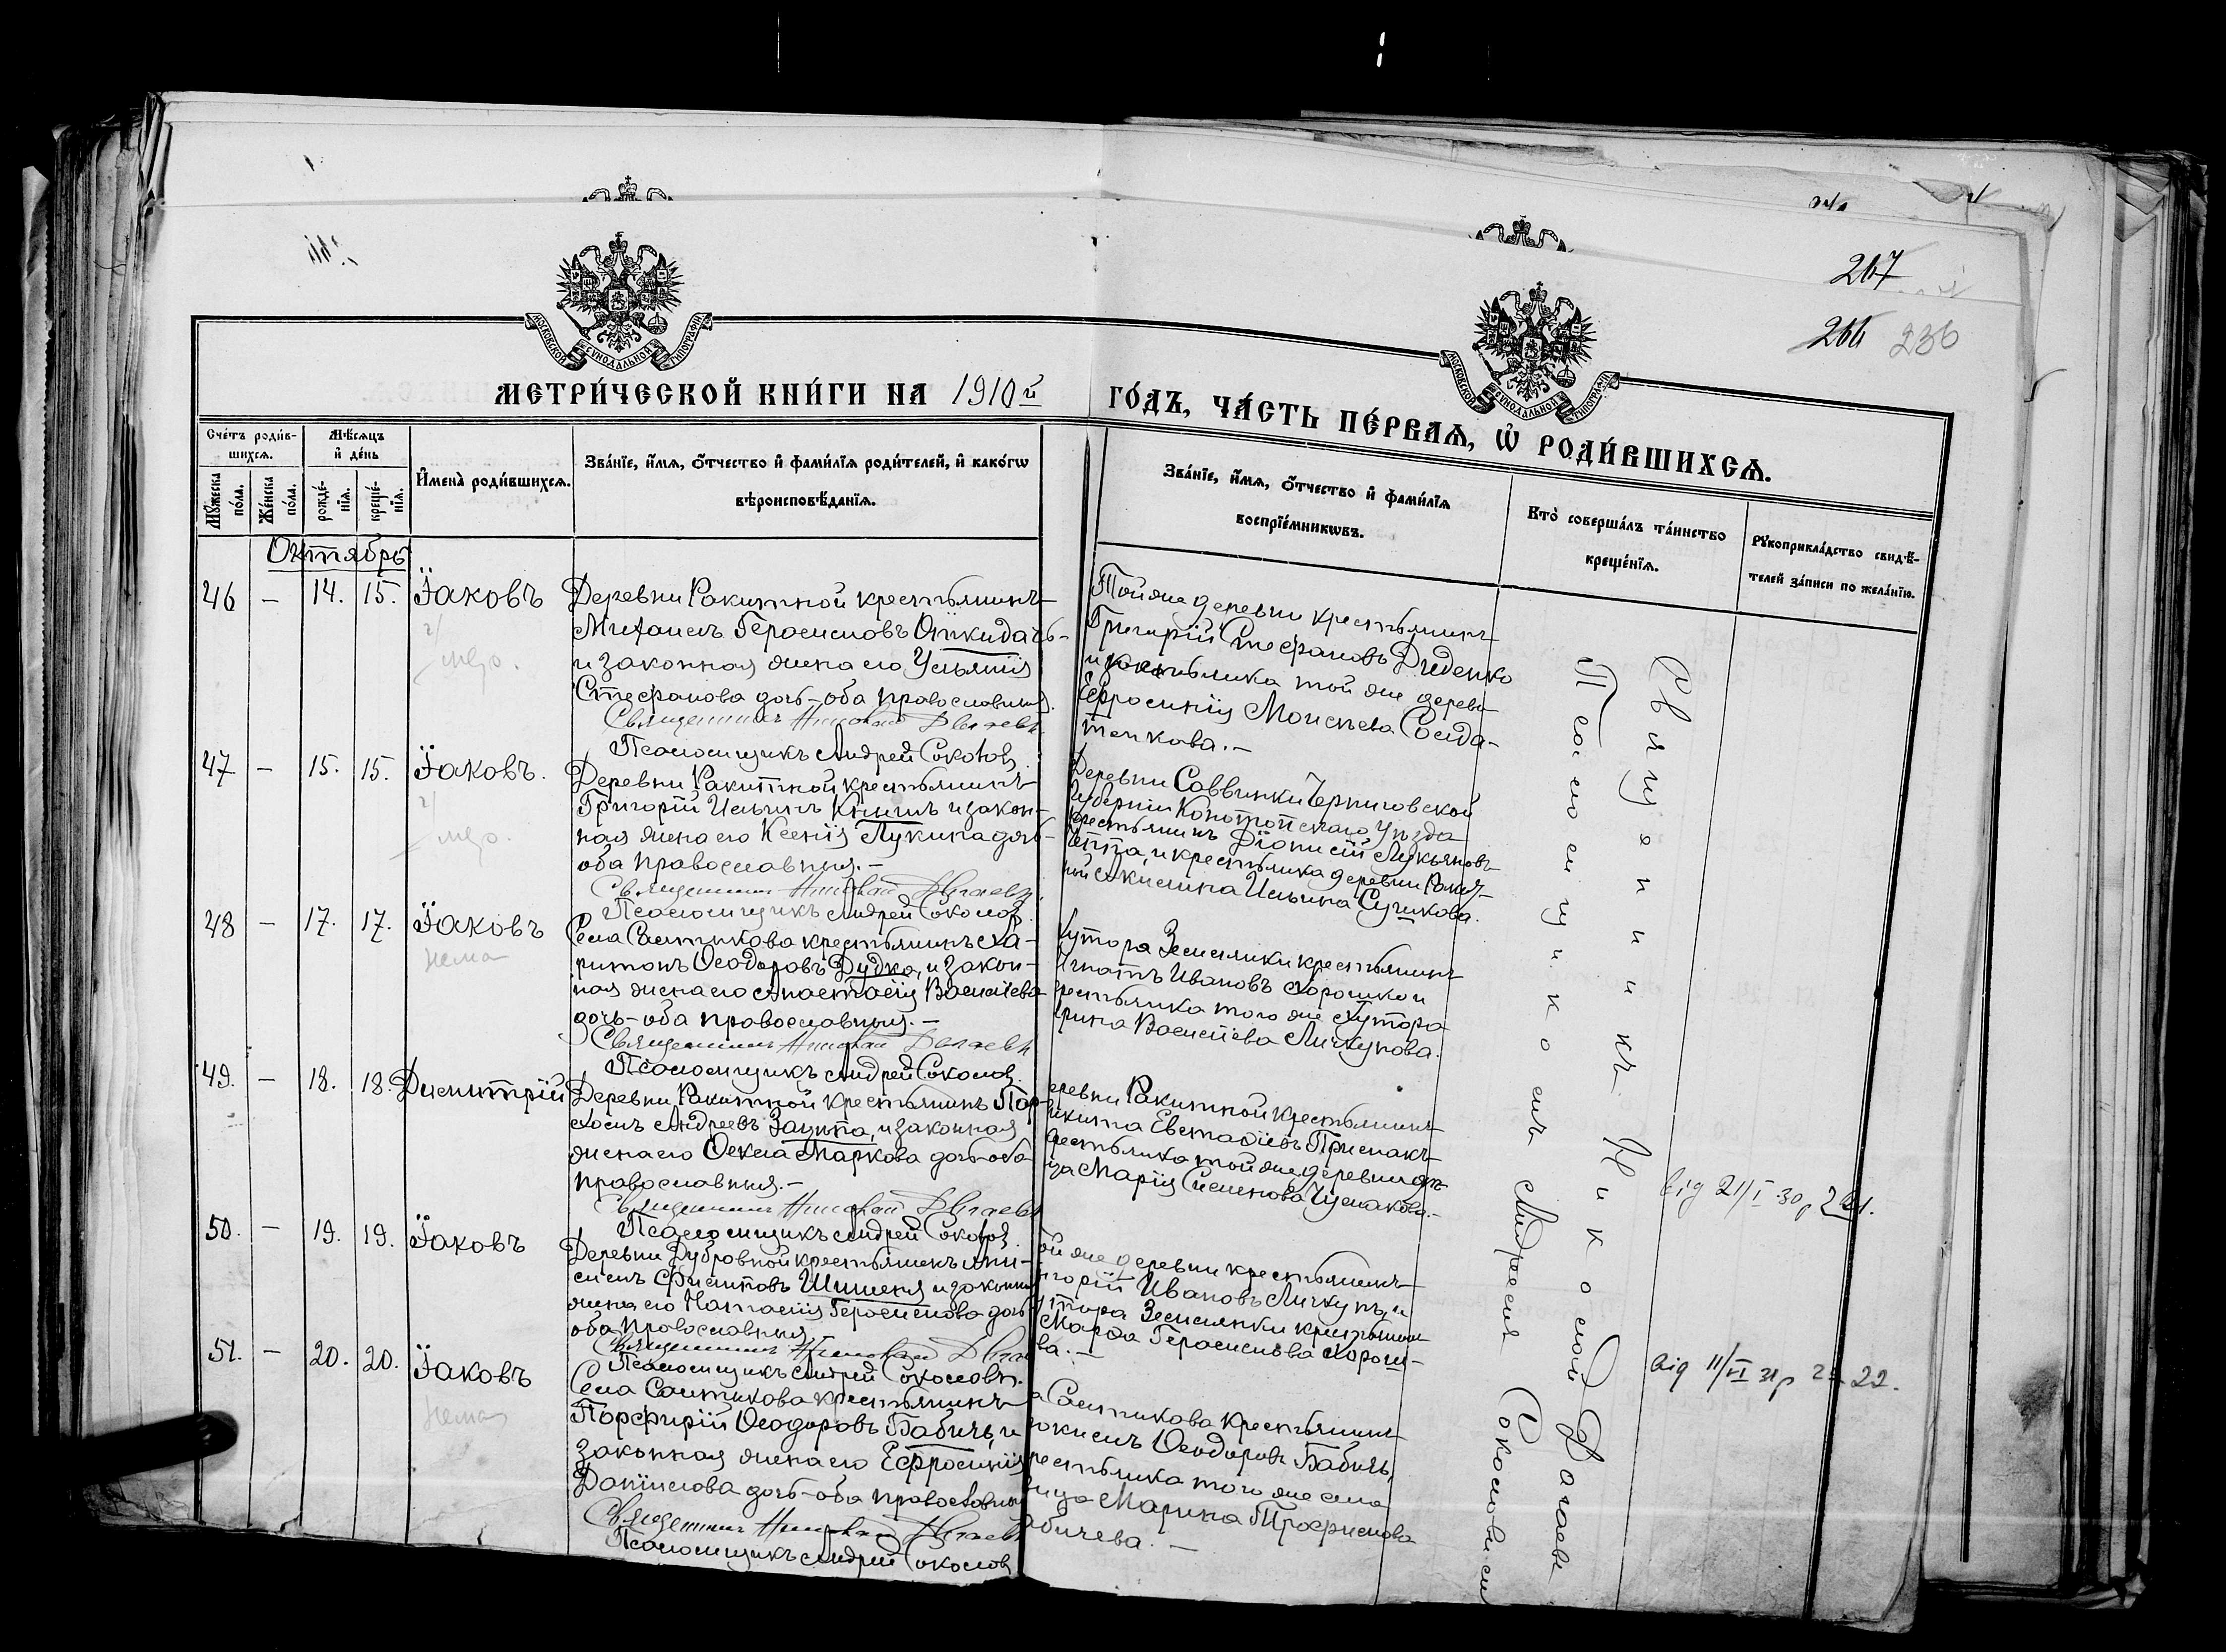 267
266 236
МОСКОВСКОЙ СѴНОДАЛЬНОЙ ТИПОГРАФІИ
МОСКОВСКОЙ СѴНОДАЛЬНОЙ ТИПОГРАФІИ
МЕТРИ́ЧЕСКОЙ КНИ́ГИ НА 1910й
ГО́ДЪ, ЧА́СТЬ ПЕ́РВАѦ, Ѡ РОДИ́ВШИХСѦ.
Сче́тъ роди́в-
шихся.
Мꙋ́жеска по́ла.
Же́нска по́ла.
Мѣ́сяцъ
и де́нь
рожде́-
нїя.
креще́-
нїя.
Имена̀ роди́вшихся.
Зва́нїе, и́мя, о́тчество и фами́лїя роди́телей, и како́гѡ
вѣроисповѣ́данїя.
Зва́нїе, и́мя, о́тчество и фами́лїя
воспрїе́мникѡвъ.
Кто̀ соверша́лъ та́инство
креще́нїя.
Рꙋкоприкла́дство свидѣ́-
телей за́писи по жела́нїю.
Октябрь
46 — 14. 15. Іаковъ
Деревни Ракитной крестьянинъ
Михаилъ Герасимовъ Откидачъ
и законная жена его Ульянія
Стефанова дочь – оба православныя.
Священникъ Николай
Псаломщикъ Андрей Соколов.
Той же деревни крестьянинъ
Григорій Стефановъ Диденко
и крестьянка той же дерев-
Ефросинія Моисеева Солда-
тенкова. —
47 — 15. 15. Іаковъ.
Деревни Ракитной крестьянинъ
Григорій Ильинъ Книшъ и закон-
ная жена его Ксенія Лукина дочь
оба православныя. —
Священникъ Николай
Псаломщикъ Андрей Соколов.
Деревни Саввинки Черниговской
губерніи Конотопскаго уѣзда
крестьянинъ Діонисій Лукьяновъ
и крестьянка деревни Ракит-
ной Акилина Ильина Сушкова.
48 — 17. 17. Іаковъ
нема
Села Салтикова крестьянинъ Ха-
ритонъ Ѳеодоровъ Дудка, и закон-
ная жена его Анастасія Васильева
дочь – оба православныя. —
Священникъ Николай
Псаломщикъ Андрей Соколов.
хутора Землянки крестьянинъ
Игнатъ Ивановъ Хорошко и
крестьянка того же хутора
Васильева Личкунова.
49. — 18. 18. Димитрій
Деревни Ракитной крестьянинъ Пар-
Андреевъ Заупта, и законная
жена его Ѳекла Маркова дочь – оба
православныя. —
Священникъ Николай
Псаломщикъ Андрей Соколов.
деревни Ракитной крестьянинъ
Никита Евстафіевъ Присмакъ
крестьянка той же деревни дѣ-
ица Марія Сименова Чумакова. —
від 21/I 30р
50. — 19. 19. Іаковъ
Деревни Дубровной крестьянинъ
Филиповъ Шишеня и законная
жена его Наталія Герасимова дочь
оба православныя.
Священникъ Николай
Псаломщикъ Андрей Соколовъ.
той же деревни крестьянинъ
Григорій Ивановъ Личкунъ, и
хутора Землянки крестьянка
Марѳа Герасимова Хорош-
ва. —
від 11/VI 31р 22.
51. — 20. 20. Іаковъ
нема
Села Салтикова крестьянинъ
Порфирій Ѳеодоровъ Бабичъ, и
законная жена его Ефросинія
Даніилова дочь – оба православныя
Священникъ Николай
Псаломщикъ Андрей Соколов
Салтикова крестьянинъ
Ѳеодоровъ Бабичъ,
крестьянка того же села
дѣвица Марина Трофимова
Бабичева. —
Священникъ Николай
Псаломщикомъ Андреемъ Соколовымъ